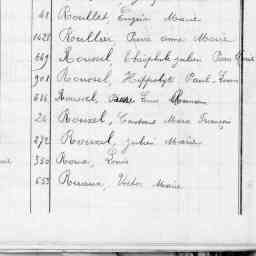 48 Roullet, Eugène Marie
1428 Roullier Pierre anne Marie
669 Roussel, Théophile Julien Pierre
901 Roussel, Hippolyte Paul Louis
Roussel, Louis Romain
24 Roussel, Marie François
272 Roussel, Julien Marie
350 Roux, Louis
653 Victor Marie